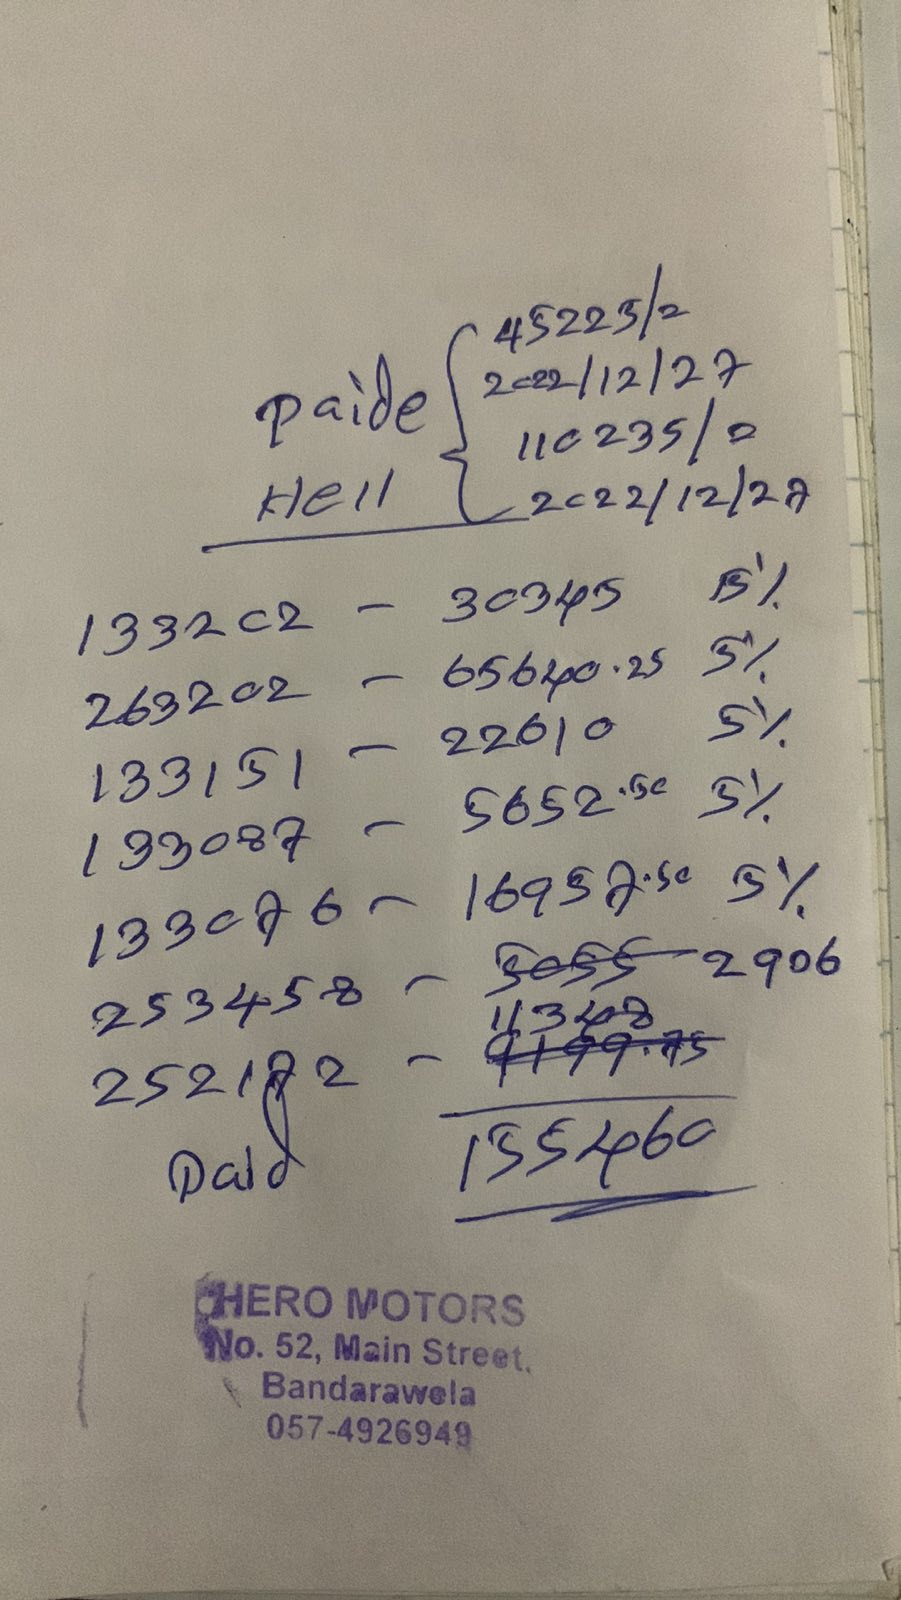 45225/=
2022/12/27
paide
110235/=
Hell
2022/12/27
133202 - 30345 5%
263202 - 65640.25 5%
133151 - 22610 5%
133087 - 5652.50 5%
133076 - 16957.50 5%
253458 - 5055 2906
11348
252172 - 9199.75
Paid 155460
HERO MOTORS
No. 52, Main Street,
Bandarawela
057-4926949